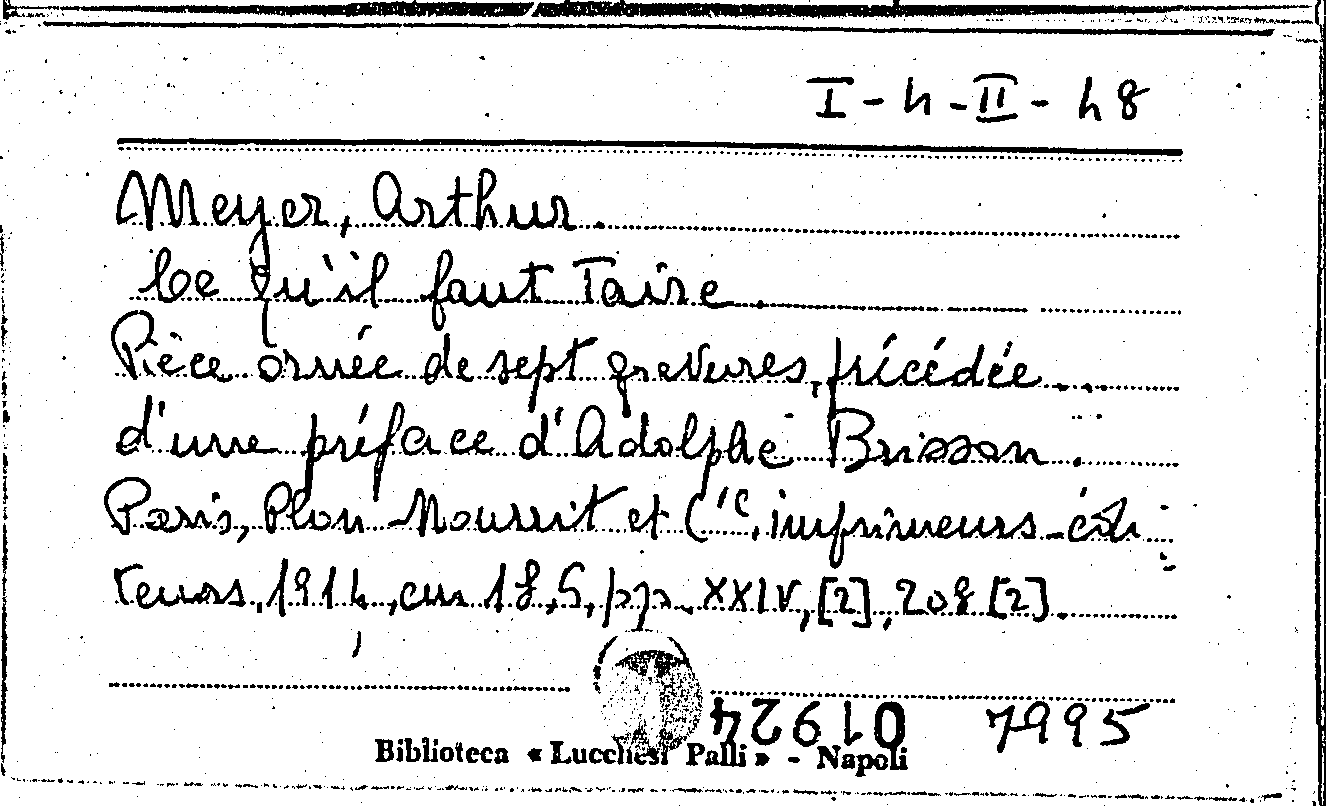 I-4-II-48
Meyer, Arthur.
Ce qu'il faut Taire.
Pièce ornée de sept gravures, précédée
d'une préface d'Adolphe Brisson.
Paris, Plon-Nourrit et Cie, imprimeurs-édi-
teurs, 1914, cm 18,5, pp. XXIV, [2], 208 [2].
01924 7995
Biblioteca « Lucchesi Palli » - Napoli